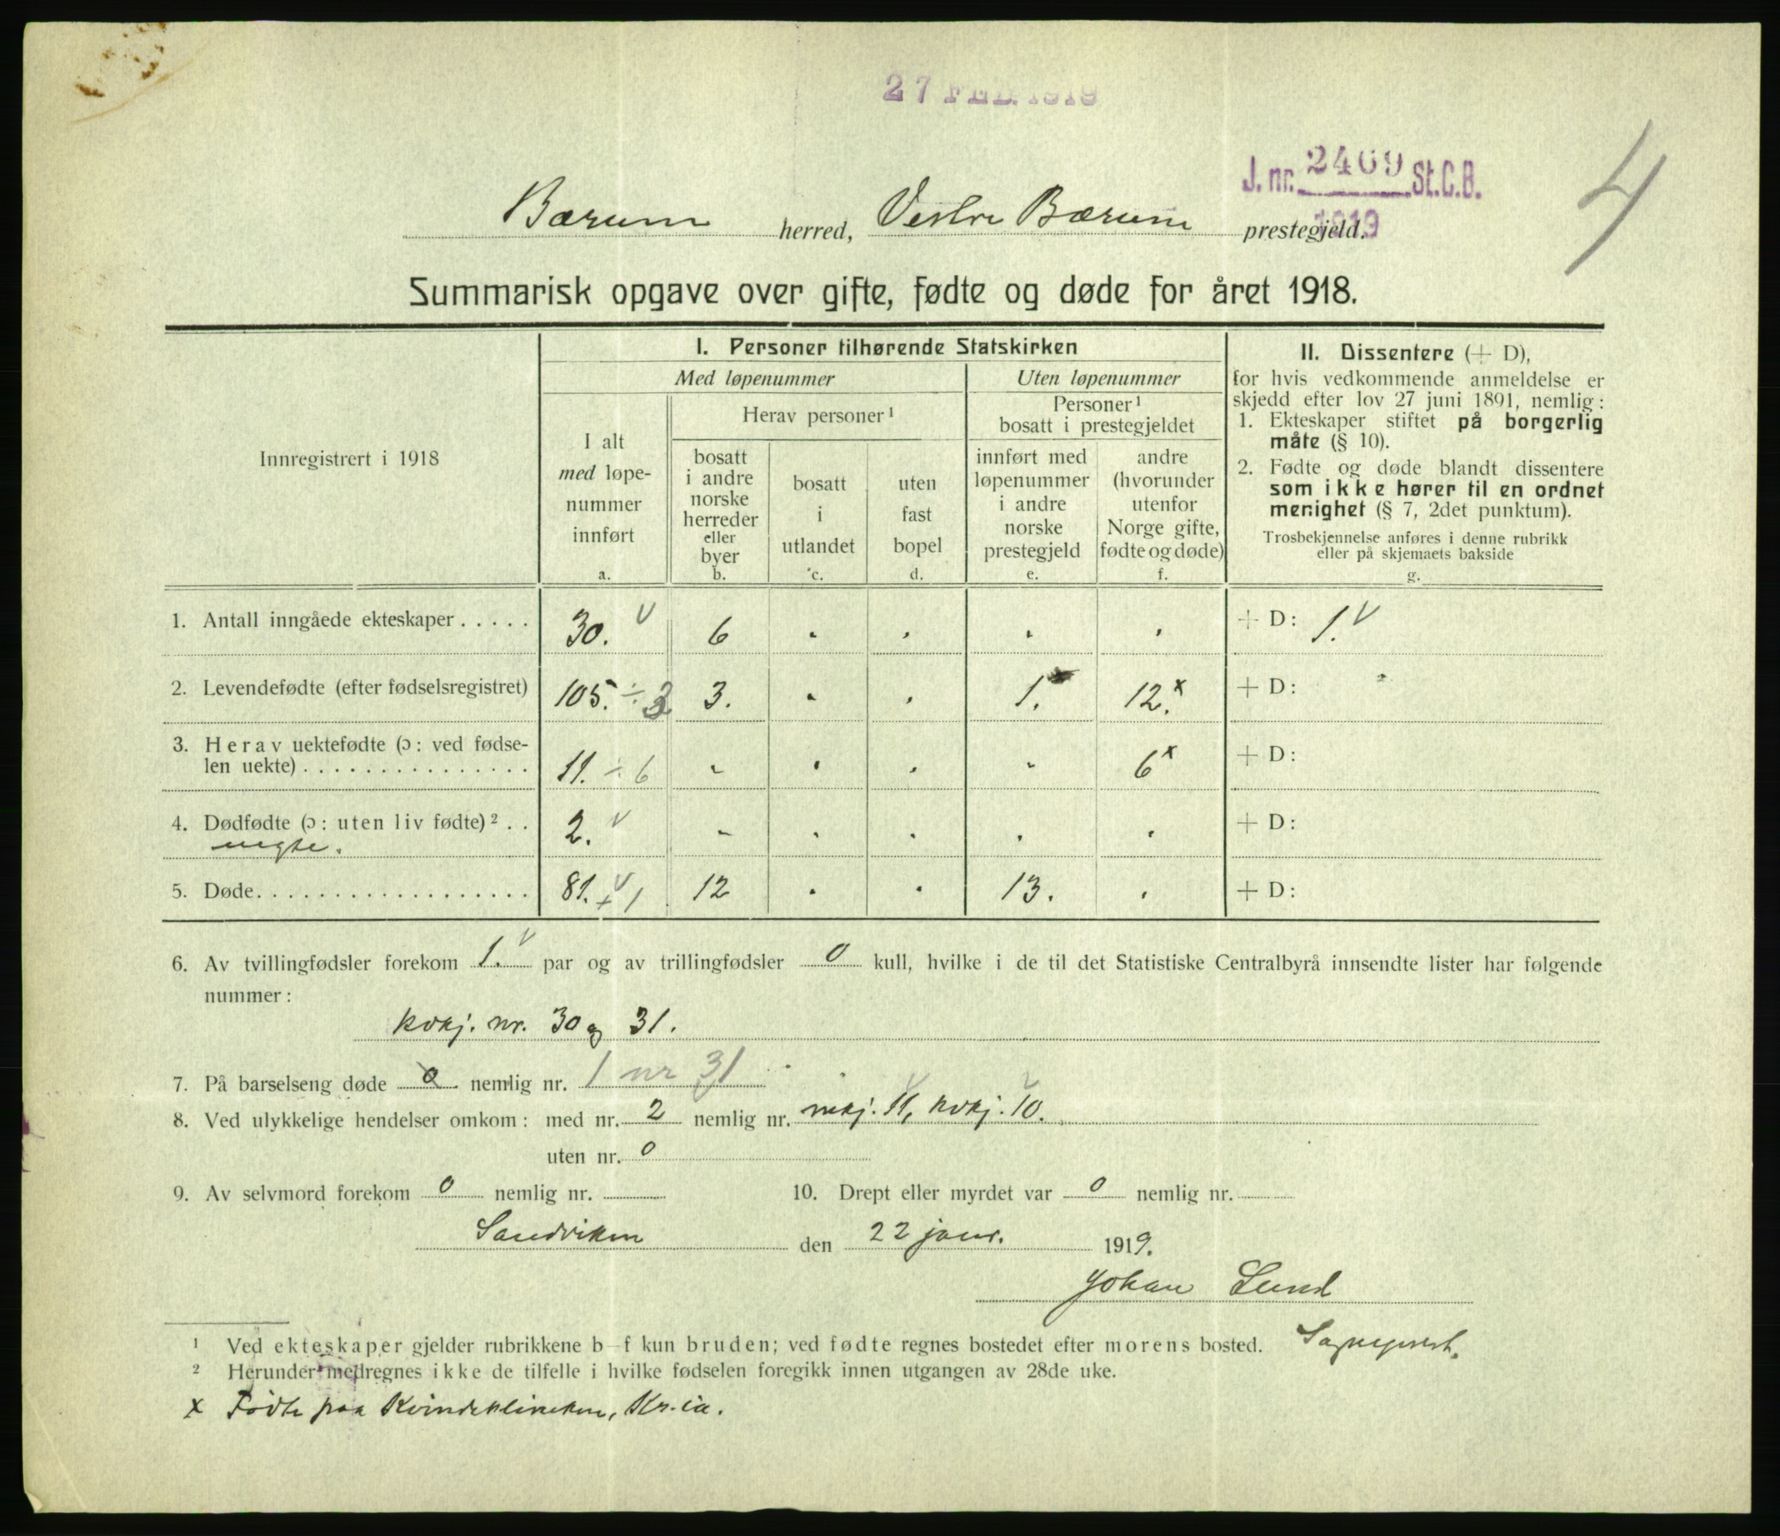 27 FEB. 1919
J. nr. 2469 St.C.B.
1919
4
Bærum herred, Vestre Bærum prestegjeld.
Summarisk opgave over gifte, fødte og døde for året 1918.
Innregistrert i 1918
I. Personer tilhørende Statskirken
Med løpenummer
Uten løpenummer
I alt
med løpe-
nummer
innført
a.
Herav personer ¹
bosatt
i andre
norske
herreder
eller
byer
b.
bosatt
i
utlandet
c.
uten
fast
bopel
d.
Personer ¹
bosatt i prestegjeldet
innført med
løpenummer
i andre
norske
prestegjeld
e.
andre
(hvorunder
utenfor
Norge gifte,
fødte og døde)
f.
II. Dissentere (+ D),
for hvis vedkommende anmeldelse er
skjedd efter lov 27 juni 1891, nemlig:
1. Ekteskaper stiftet på borgerlig
måte (§ 10).
2. Fødte og døde blandt dissentere
som ikke hører til en ordnet
menighet (§ 7, 2det punktum).
Trosbekjennelse anføres i denne rubrikk
eller på skjemaets bakside
g.
1. Antall inngåede ekteskaper . . . . . 30. v 6 . . . . + D: 1. v
2. Levendefødte (efter fødselsregistret) 105. ÷ 3 3. . . 1. x 12. x + D:
3. Herav uektefødte (ɔ: ved fødse-
len uekte) . . . . . . . . . . . . . . . 11. ÷ 6 - . . - 6 x + D:
4. Dødfødte (ɔ: uten liv fødte) ² . . 2. v - . . . . + D:
uegte.
5. Døde . . . . . . . . . . . . . . . . . . 81. v + 1 12 . . 13. . + D:
6. Av tvillingfødsler forekom 1. v par og av trillingfødsler 0 kull, hvilke i de til det Statistiske Centralbyrå innsendte lister har følgende
nummer:
kvkj. nr. 30 og 31.
7. På barselseng døde 0 nemlig nr. 1 nr 31
8. Ved ulykkelige hendelser omkom: med nr. 2 nemlig nr. mkj. 11, kvkj. 10.
uten nr. 0
9. Av selvmord forekom 0 nemlig nr.
10. Drept eller myrdet var 0 nemlig nr.
Sandviken den 22 janr. 1919.
Johan Lund
Sogneprest.
¹ Ved ekteskaper gjelder rubrikkene b—f kun bruden; ved fødte regnes bostedet efter morens bosted.
² Herunder medregnes ikke de tilfelle i hvilke fødselen foregikk innen utgangen av 28de uke.
x Fødte paa Kvindeklineken, Kr.ia.